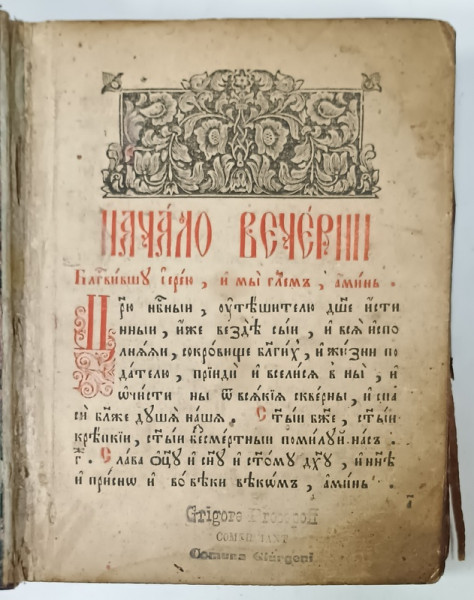 НАЧА́ЛО ВЕЧЕ́РНИ
Бл҃гві́вшу і҆ере́ю, и҆ мы̀ гл҃емъ, а҆ми́нь.
Цр҃ю нб҃ныи, ᲂу҆тѣ́шителю дш҃е и҆сти
нныи, и҆́же вездѣ̀ сы́и, и҆ всѧ̀ и҆спо
лнѧ́ѧи, сокро́вище бл҃ги́хъ, и҆ жи́зни по
да́телю, прїидѝ и҆ вселисѧ в ны̀, и҆
ѡ҆чи́сти ны ѿ всѧ́кїѧ скве́рны, и҆ спа
сѝ бл҃же дꙋшѧ̀ на́шѧ. Ст҃ы́и бж҃е, ст҃ы́и
крѣ́пкїи, ст҃ы́и бесме́ртныи поми́лꙋй на́съ.
г҃. Сла́ва ѻ҆ц҃ꙋ̀ и҆ сн҃ꙋ и҆ ст҃о́мꙋ дх҃ꙋ, и҆ ны́нѣ
и҆ при́снѡ и҆ во вѣ́ки вѣкѡ́мъ, а҆ми́нь.
а҃
Grigore
COMERSANT
Comuna Giurgeni